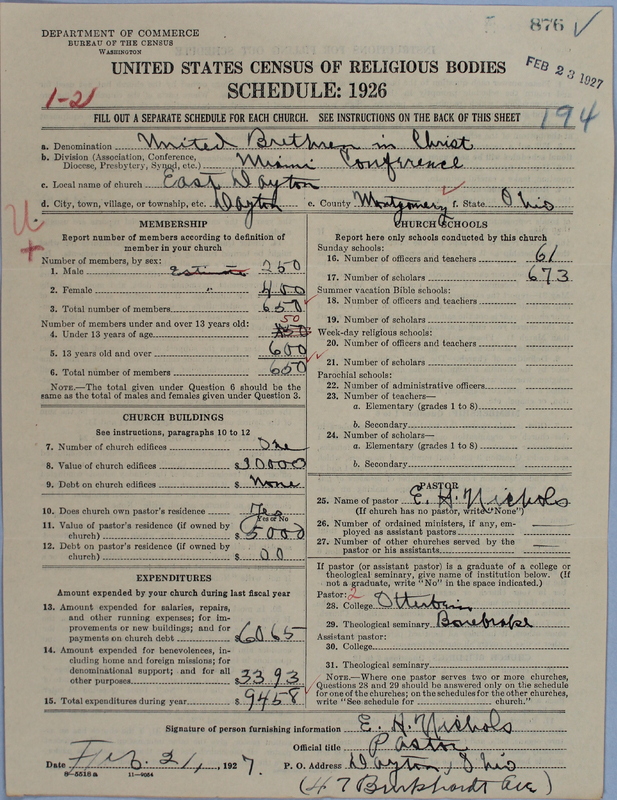 DEPARTMENT OF COMMERCE
BUREAU OF THE CENSUS
WASHINGTON
876 ✓
UNITED STATES CENSUS OF RELIGIOUS BODIES
FEB 23 1927
SCHEDULE: 1926
1-21
FILL OUT A SEPARATE SCHEDULE FOR EACH CHURCH. SEE INSTRUCTIONS ON THE BACK OF THIS SHEET
194
a. Denomination United Brethren in Christ
b. Division (Association, Conference, Diocese, Presbytery, Synod, etc.) Miami Conference
c. Local name of church East Dayton
d. City, town, village, or township, etc. Dayton e. County Montgomery f. State Ohio
U
+
MEMBERSHIP
Report number of members according to definition of
member in your church
Number of members, by sex:
1. Male Estimate 250
2. Female " 400
3. Total number of members 650
Number of members under and over 13 years old: 50
4. Under 13 years of age
5. 13 years old and over 600
6. Total number of members 650
NOTE.—The total given under Question 6 should be the
same as the total of males and females given under Question 3.
CHURCH BUILDINGS
See instructions, paragraphs 10 to 12
7. Number of church edifices One
8. Value of church edifices $
9. Debt on church edifices $ None
10. Does church own pastor's residence Yes
Yes or No
11. Value of pastor's residence (if owned by
church) $ 5000
12. Debt on pastor's residence (if owned by
church) $ 00
EXPENDITURES
Amount expended by your church during last fiscal year
13. Amount expended for salaries, repairs,
and other running expenses; for im-
provements or new buildings; and for
payments on church debt $ 6065
14. Amount expended for benevolences, in-
cluding home and foreign missions; for
denominational support; and for all
other purposes $ 3393
15. Total expenditures during year $ 9458
CHURCH SCHOOLS
Report here only schools conducted by this church
Sunday schools:
16. Number of officers and teachers 61
17. Number of scholars 673
Summer vacation Bible schools:
18. Number of officers and teachers
19. Number of scholars
Week-day religious schools:
20. Number of officers and teachers
21. Number of scholars
Parochial schools:
22. Number of administrative officers
23. Number of teachers—
a. Elementary (grades 1 to 8)
b. Secondary
24. Number of scholars—
a. Elementary (grades 1 to 8)
b. Secondary
PASTOR
25. Name of pastor E. H. Nichols
(If church has no pastor, write "None")
26. Number of ordained ministers, if any, em-
ployed as assistant pastors
27. Number of other churches served by the
pastor or his assistants
If pastor (or assistant pastor) is a graduate of a college or
theological seminary, give name of institution below. (If
not a graduate, write "No" in the space indicated.)
Pastor: 2
28. College Otterbein
29. Theological seminary Bonebrake
Assistant pastor:
30. College
31. Theological seminary
NOTE.—Where one pastor serves two or more churches,
Questions 28 and 29 should be answered only on the schedule
for one of the churches; on the schedules for the other churches,
write "See schedule for church."
Signature of person furnishing information E. H. Nichols
Official title Pastor
Date Feb. 21, 1927. P. O. Address Dayton, Ohio
8-5518a 11-9054
(47 Burkhardt Ave)